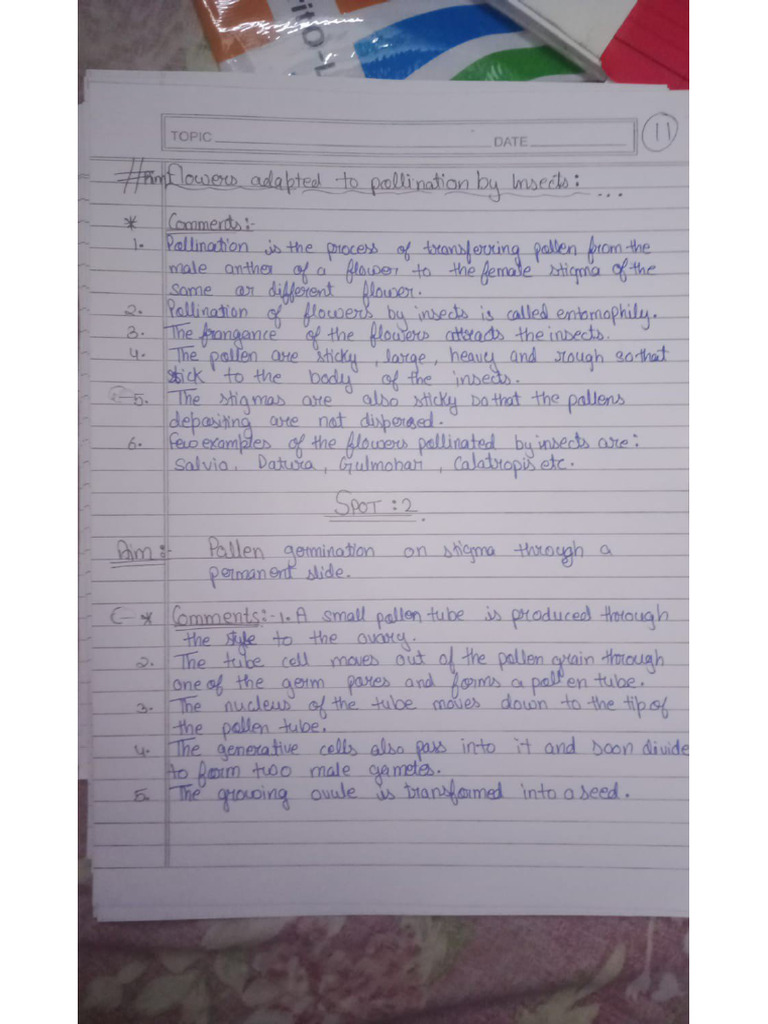 ito-L
TOPIC DATE
11
# flowers adapted to pollination by Insects: ...
* Comments:-
1. Pollination is the process of transferring pollen from the
male anther of a flower to the female stigma of the
same or different flower.
2. Pollination of flowers by insects is called entomophily.
3. The frangance of the flowers attracts the insects.
4. The pollen are sticky, large, heavy and rough so that
stick to the body of the insects.
5. The stigmas are also sticky so that the pollens
depositing are not dispersed.
6. few examples of the flowers pollinated by insects are:
Salvia, Datura, Gulmohar, Calatropis etc.
SPOT : 2.
Aim:- Pollen germination on stigma through a
permanent slide.
* Comments:- 1. A small pollen tube is produced through
the style to the ovary.
2. The tube cell moves out of the pollen grain through
one of the germ pores and forms a pollen tube.
3. The nucleus of the tube moves down to the tip of
the pollen tube.
4. The generative cells also pass into it and soon divide
to form two male gametes.
5. The growing ovule is transformed into a seed.